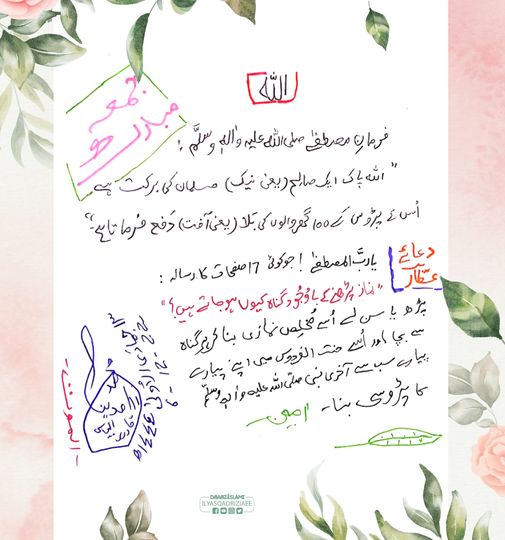 الله
جمعہ
مبارک
فرمانِ مصطفےٰ صلی اللہ علیہ واٰلہٖ وسلَّم :
"اللہ پاک ایک صالح (یعنی نیک) مسلمان کی برکت سے
اُس کے پڑوس کے 100 گھر والوں کی بَلا (یعنی آفت) دَفع فرماتا ہے"
دعائے
عطّار
یاربَّ المصطفےٰ ! جو کوئی 17 صفحات کا رسالہ :
"نماز پڑھنے کے باوُجود گناہ کیوں ہو جاتے ہیں؟"
پڑھ یا سن لے اُسے مُخلِص نمازی بنا کر ہر گناہ
سے بچا اور اُسے جنت الفردوس میں اپنے پیارے
پیارے سب سے آخری نبی صلی اللہ علیہ واٰلہٖ وسلَّم
کا پڑوسی بنا۔ امین
DAWATEISLAMI
ILYASQADRIZIAEE